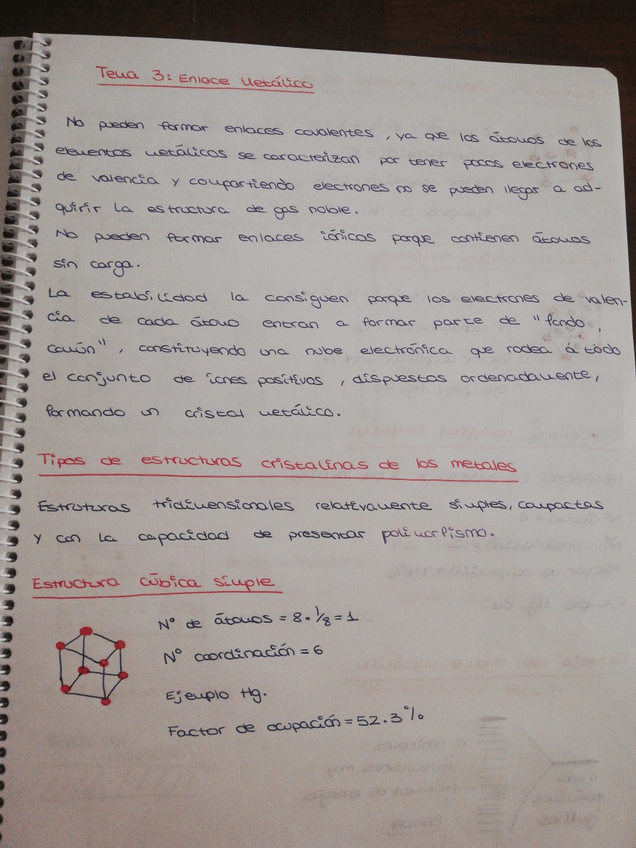 Tema 3: Enlace Metálico
No pueden formar enlaces covalentes, ya que los átomos de los
elementos metálicos se caracterizan por tener pocos electrones
de valencia y compartiendo electrones no se pueden llegar a ad-
quirir la estructura de gas noble.
No pueden formar enlaces iónicos porque contienen átomos
sin carga.
La estabilidad la consiguen porque los electrones de valen-
cia de cada átomo entran a formar parte de "fondo
común", constituyendo una nube electrónica que rodea a todo
el conjunto de iones positivos, dispuestos ordenadamente,
formando un cristal metálico.
Tipos de estructuras cristalinas de los metales
Estruturas tridimensionales relativamente simples, compactas
y con la capacidad de presentar polimorfismo.
Estructura cúbica simple
Nº de átomos = 8 · 1/8 = 1
Nº coordinación = 6
Ejemplo Hg.
Factor de ocupación = 52.3%